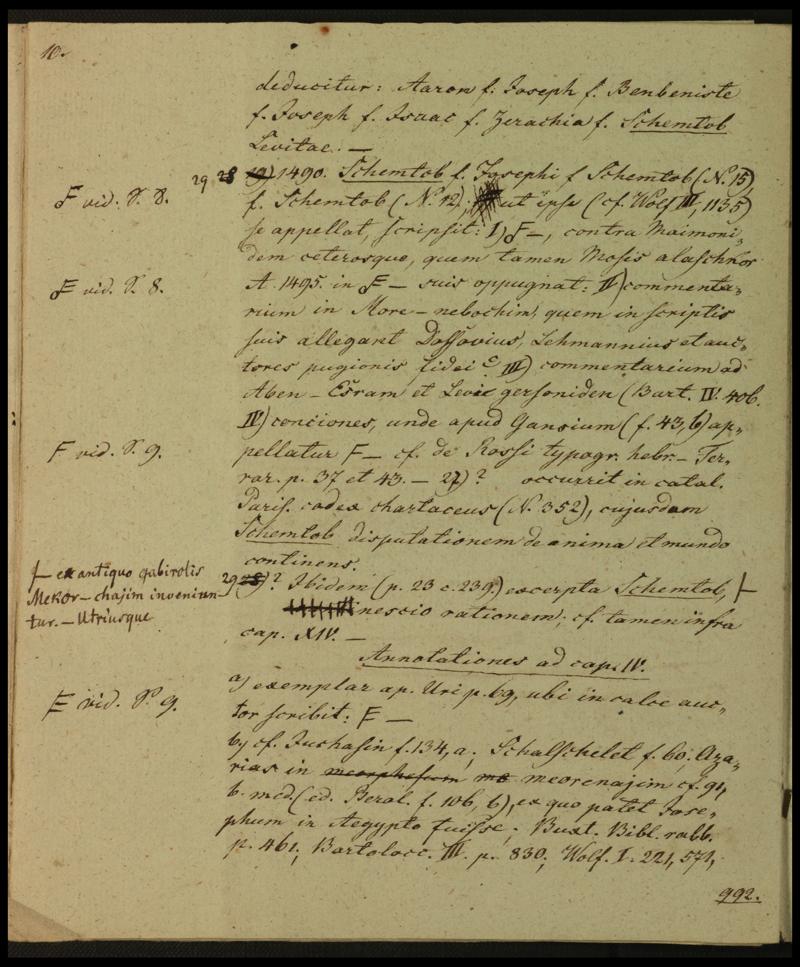 10.
deducitur: Aaron f. Joseph f. Benbeniste
f. Joseph f. Isaac f. Zerachia f. Schemtob
Levitae. —
29 28 19) 1490. Schemtob f. Josephi f Schemtob (N. 15)
F vid. S. 8.
f. Schemtob (N. 12), ut ipse (cf. Wolf III, 1135)
se appellat, scripsit: I) F —, contra Maimoni-
dem ceterosque, quem tamen Moses alaschkor
F vid. S. 8.
A. 1495. in F — suis oppugnat: II) commenta-
rium in More-nebochim, quem in scriptis
suis allegant Dassovius, Lehmannius et auc-
tores pugionis fidei c III) commentarium ad
Aben-Esram et Levi gersoniden (Bart. IV. 406.
IV) conciones, unde apud Gansium (f. 43, b) ap-
F vid. S. 9.
pellatur F — cf. de Rossi typogr. hebr.-Fer-
rar. p. 37 et 43. — 27)? occurrit in catal.
Paris. codex chartaceus (N. 352), cujusdam
Schemtob disputationem de anima et mundo
continens.
29 28)? Ibidem (p. 23 c. 239.) excerpta Schemtob, |—
|— ex antiquo gabirolis
Mekor-chajim inveniun-
tur. — Utriusque
nescio rationem; cf. tamen infra
cap. XIV. —
Annotationes ad cap. IV.
a) exemplar ap. Uri p. 69, ubi in calce auc-
F vid. S. 9.
tor scribit: F —
b) cf. Juchasin f. 134, a; Schalschelet f. 60; Aza-
rias in meorenajim cf. 91,
b. med. (ed. Berol. f. 106, b), ex quo patet Jose-
phum in Aegypto fuisse; Buxt. Bibl. rabb.
p. 461; Bartolocc. III. p. 830; Wolf. I. 221, 571,
992.